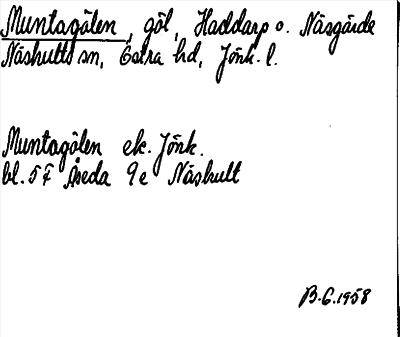 Muntagölen, göl, Haddarp o. Näsgårde
Näshults sn, Östra hd, Jönk. l.
Muntagölen ek. Jönk.
bl. 57 Åseda 9e Näshult
B.G.1958